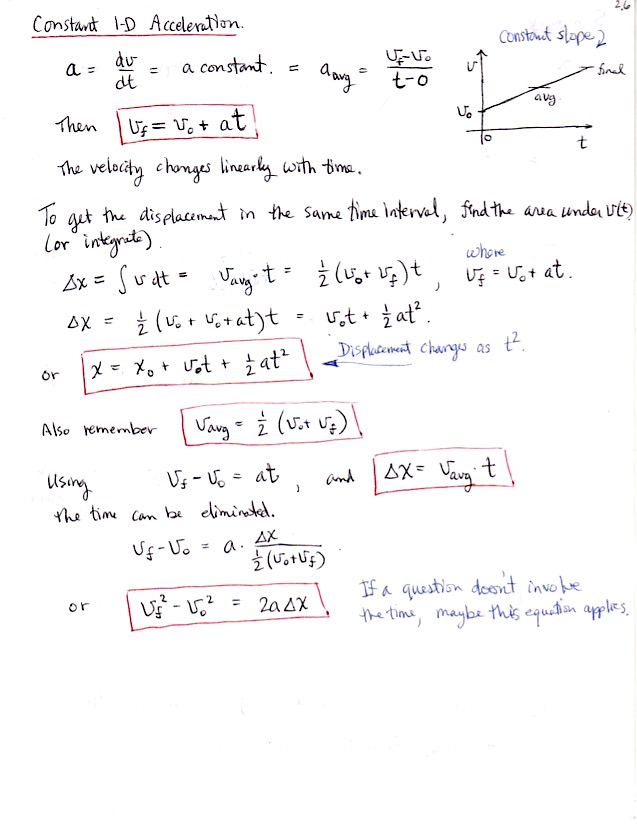 2.6
Constant 1-D Acceleration.
Constant slope
a = dv/dt = a constant. = a_avg = (v_f - v_o)/(t - 0)
v
final
avg.
v_o
0
t
Then v_f = v_o + at
The velocity changes linearly with time.
To get the displacement in the same time interval, find the area under v(t)
(or integrate).
Δx = ∫ v dt = v_avg · t = ½ (v_o + v_f) t , where v_f = v_o + at.
Δx = ½ (v_o + v_o + at) t = v_o t + ½ at².
or x = x_o + v_o t + ½ at² Displacement changes as t².
Also remember v_avg = ½ (v_o + v_f)
Using v_f - v_o = at , and Δx = v_avg · t
the time can be eliminated.
v_f - v_o = a · Δx/(½ (v_o + v_f)) .
or v_f² - v_o² = 2aΔx
If a question doesn't involve
the time, maybe this equation applies.